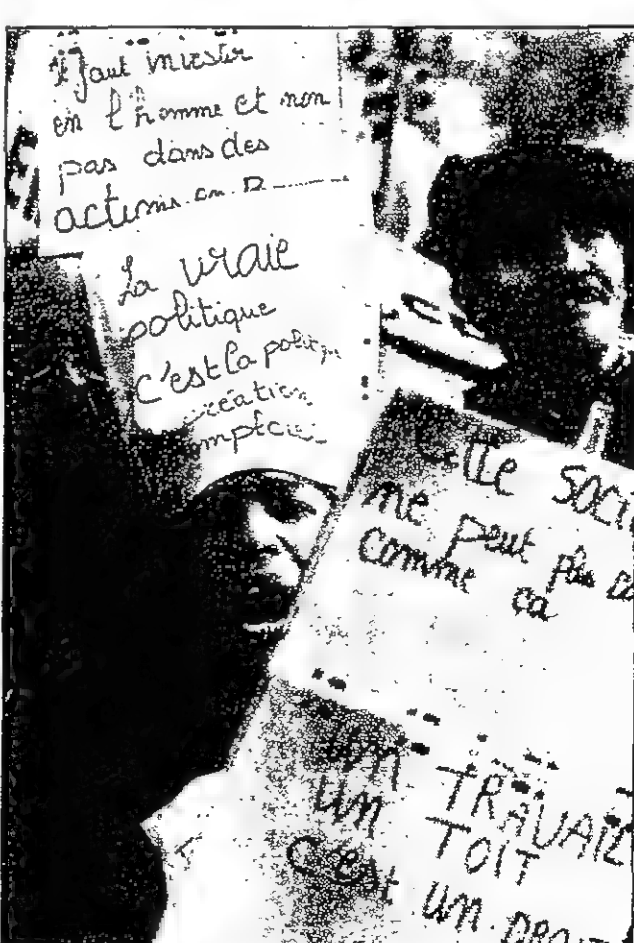 Il faut investir
en l'homme et non
pas dans des
actions en
La vraie
politique
c'est la politiq
création
mploi
cette soci
ne peut plus co
comme ça
un TRAVAIL
un TOIT
c'est un DROIT